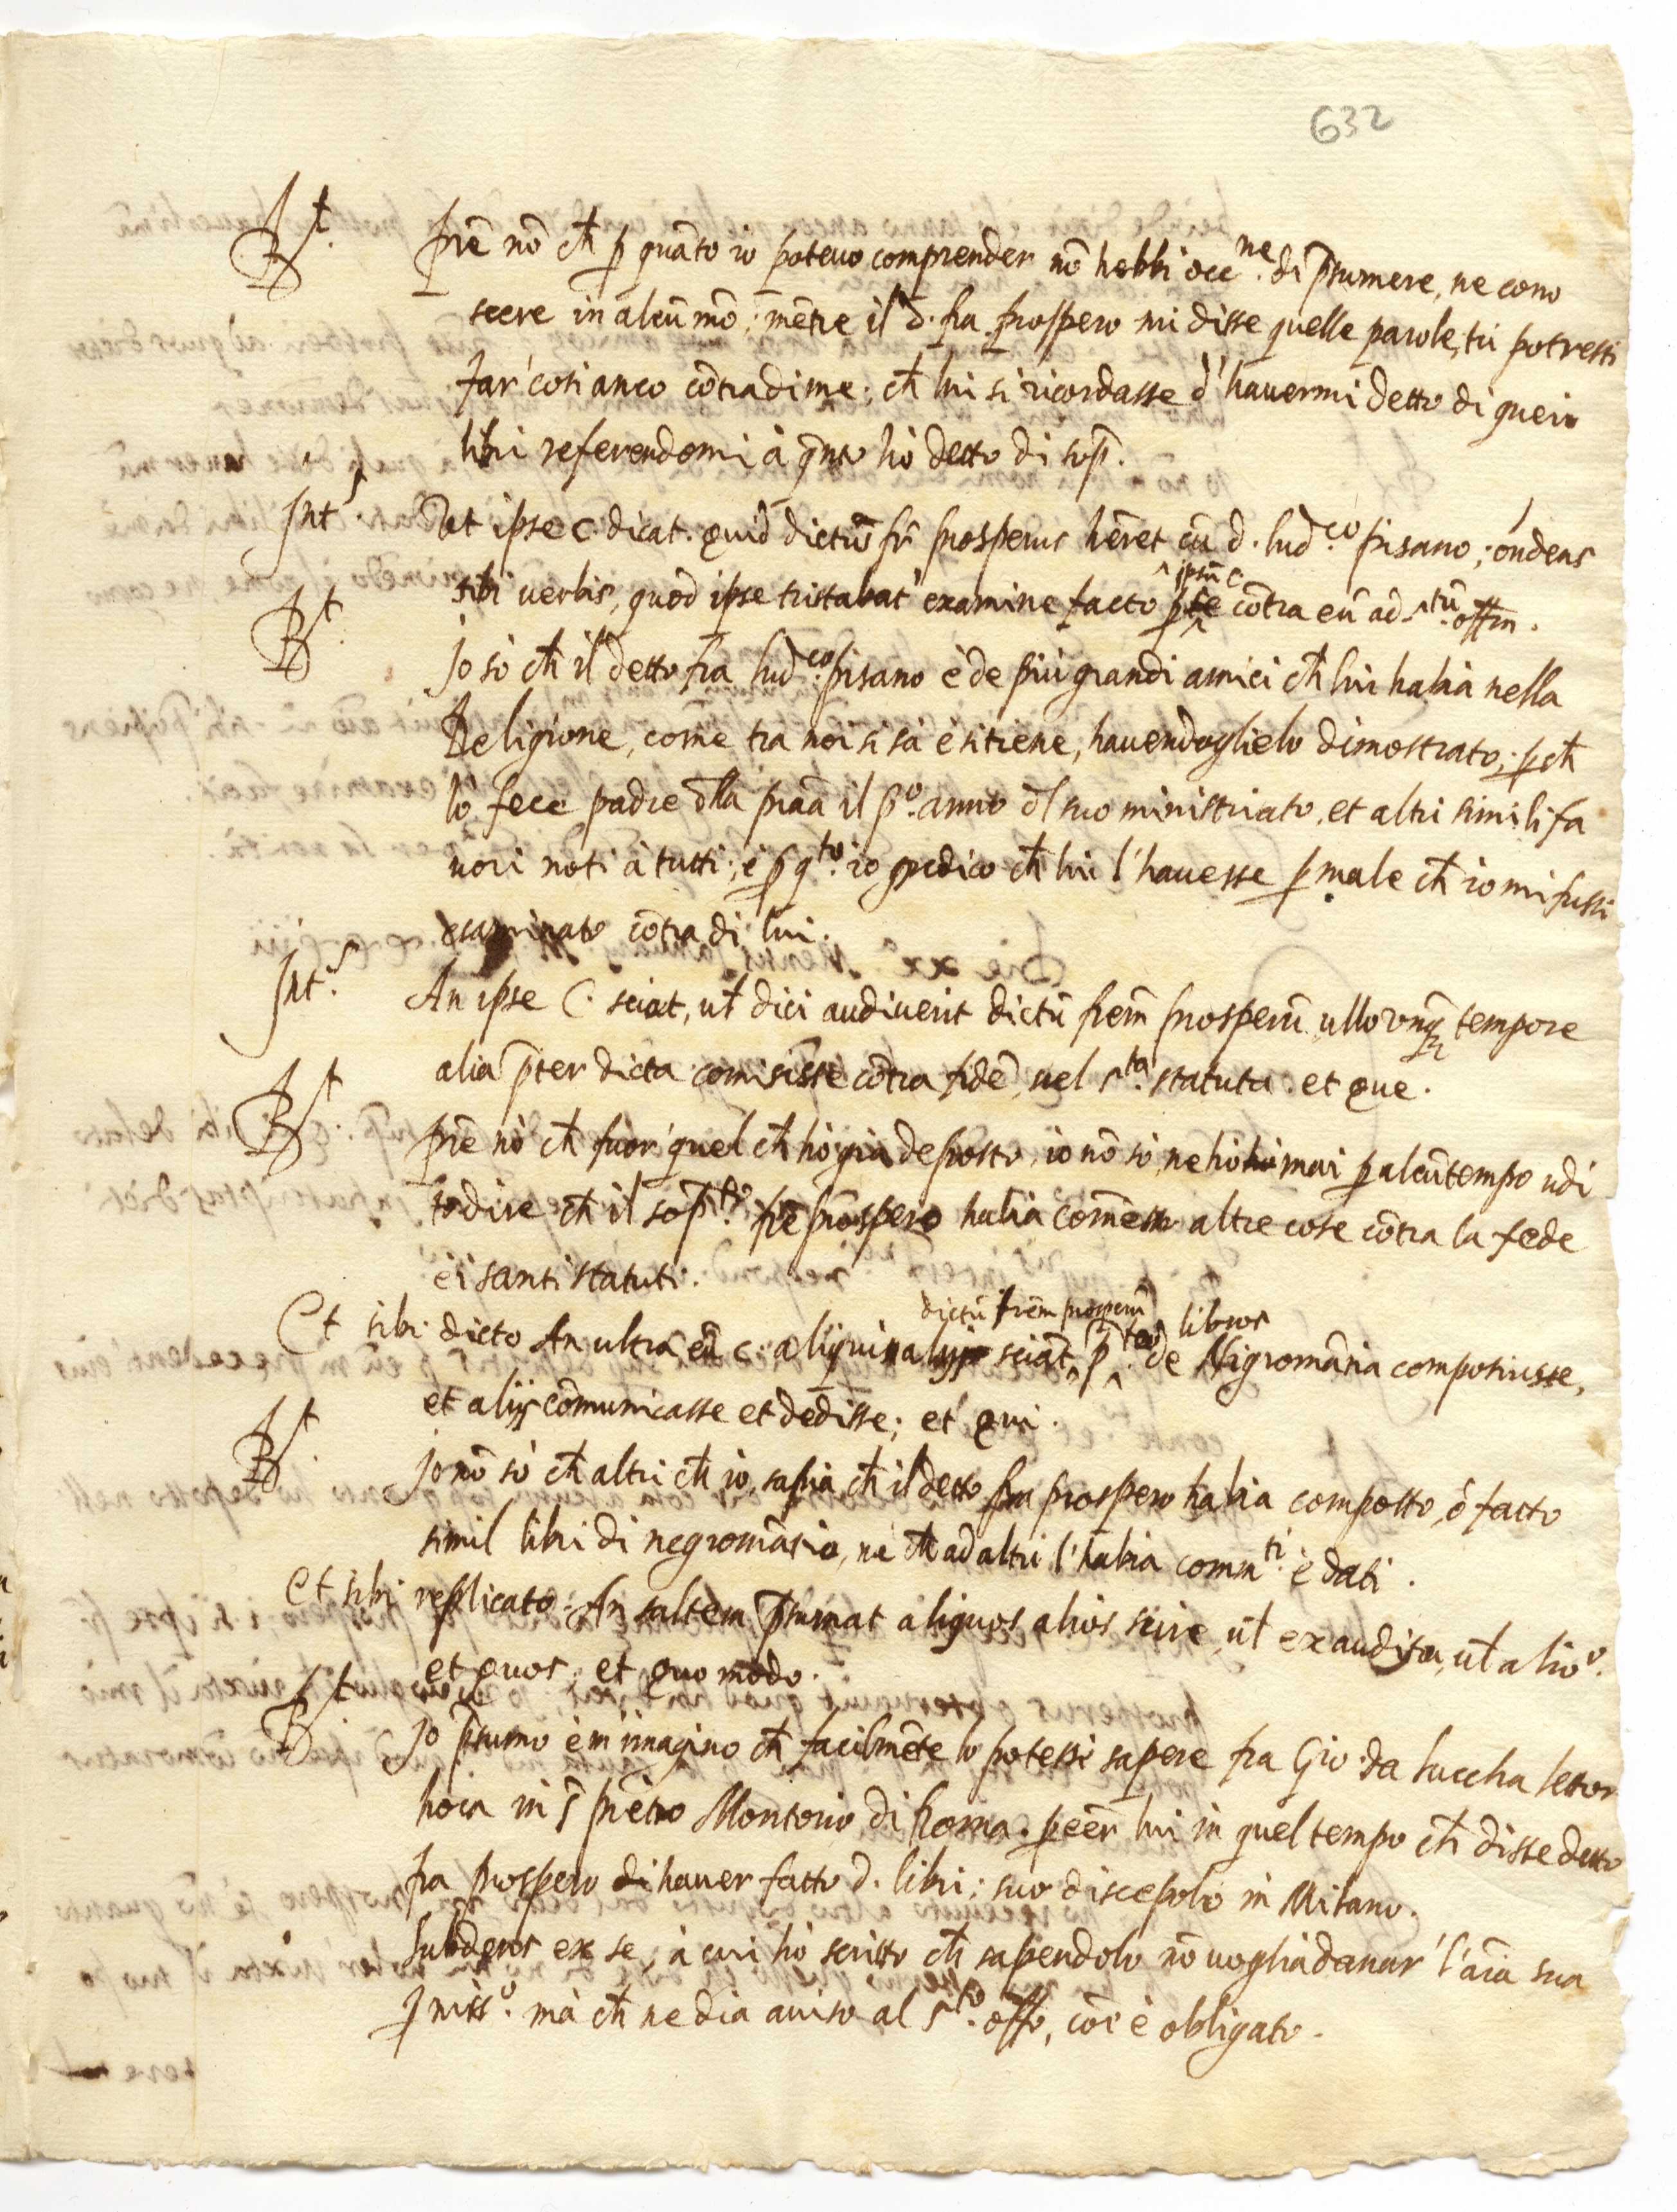 632
Rt. prē nō ch̄ p quāto io potevo comprender nō hebbi occ.ne di p̄sumere, ne cono
scere in alcū mō; mētre il d. fra prospero mi disse quelle parole, tù potresti
far' così anco cōtra di me; ch̄ lui si ricordasse d'havermi detto di quei
libri referendomi à q̄nto hò detto di sop̄.
Int.s Ut ipse C. dicat. quid dictus fr̄ prosperus hēret cū d. lud.co pisano; ōndens
sibi verbis, quod ipse tristabat' examine facto p ipsū C. cōtra eū ad s.tū offm.
Rt. Io sò ch̄ il detto fra lud.co pisano è de più grandi amici ch̄ lui habia nella
Religione, come tra noi si sà è si tiene, havendoglielo dimostrato; p ch̄
lo fece padre dl̄la prāa il p.o anno dl̄ suo ministriato, et altri simili fa
vori noti à tutti; è p q.to io dico ch̄ lui l'havesse p male ch̄ io mi fussi
esaminato cōtra di lui.
Int.s An ipse C. sciat, ul̄ dici audiverit dictū frem̄ prosperū ullo vnq̄ tempore
alia p̄ter dicta comisisse cōtra fidē, vel s.ta statuta. et que.
Rt. prē nò ch̄ fuor' quel ch̄ hò già deposto, io nō sò, ne hò mai p alcū tempo udi
to dire ch̄ il sop̄.to frē prospero habia comēsso altre cose cōtra la fede
e i santi statuti.
Et sibi dicto An ultra eū C. aliqui alij sciāt, dictū frēm prosperū p.tos libros de Nigromātia composuisse,
et alijs cōmunicasse et dedisse; et qui.
Rt. Io nō sò ch̄ altri ch̄ io, sapia ch̄ il detto fra prospero habia composto, ò facto
simil libri di negromātia, ne ch̄ ad altri l'habia comm.ti è dati.
Et sibi replicato. An saltem p̄sumat aliquos alios scire, ul̄ ex audito, ul̄ alio.o
et quos; et quo modo.
Rt. Io p̄sumo è m'imagino ch̄ facilmēte lo potessi sapere fra Gio. da luccha lettor
hora in S. Piētro Montorio di Roma. p eēr lui in quel tempo ch̄ disse detto
fra prospero di haver fatto d. libri; suo discepolo in Milano.
Subdens ex se, à cui hò scritto ch̄ sapendolo nō voglia danar' l'aīa sua
mà ch̄ ne dia aviso al s.to offo, coē è obligato.